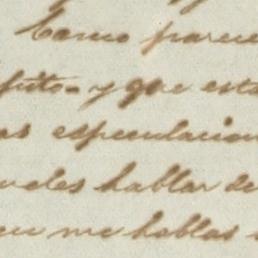 Como parece
puto - y que esta
as especulacion
edes hablar de
me hablas